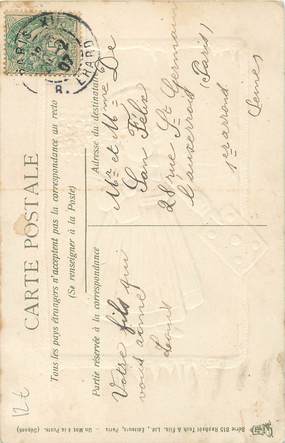 CARTE POSTALE
Tous les pays étrangers n'acceptent pas la correspondance au recto
(Se renseigner à la Poste)
Partie réservée à la correspondance
Votre fils qui
vous aime
Louis
Adresse du destinataire
Mr et Mme De
San Félix
28 rue St Germain
l'auxerrois (Paris)
1er arrond
Seine
Série 815 Raphael Tuck & Fils, Ltd., Editeurs, Paris. — Un Mot à la Poste. (Déposé)
12 t